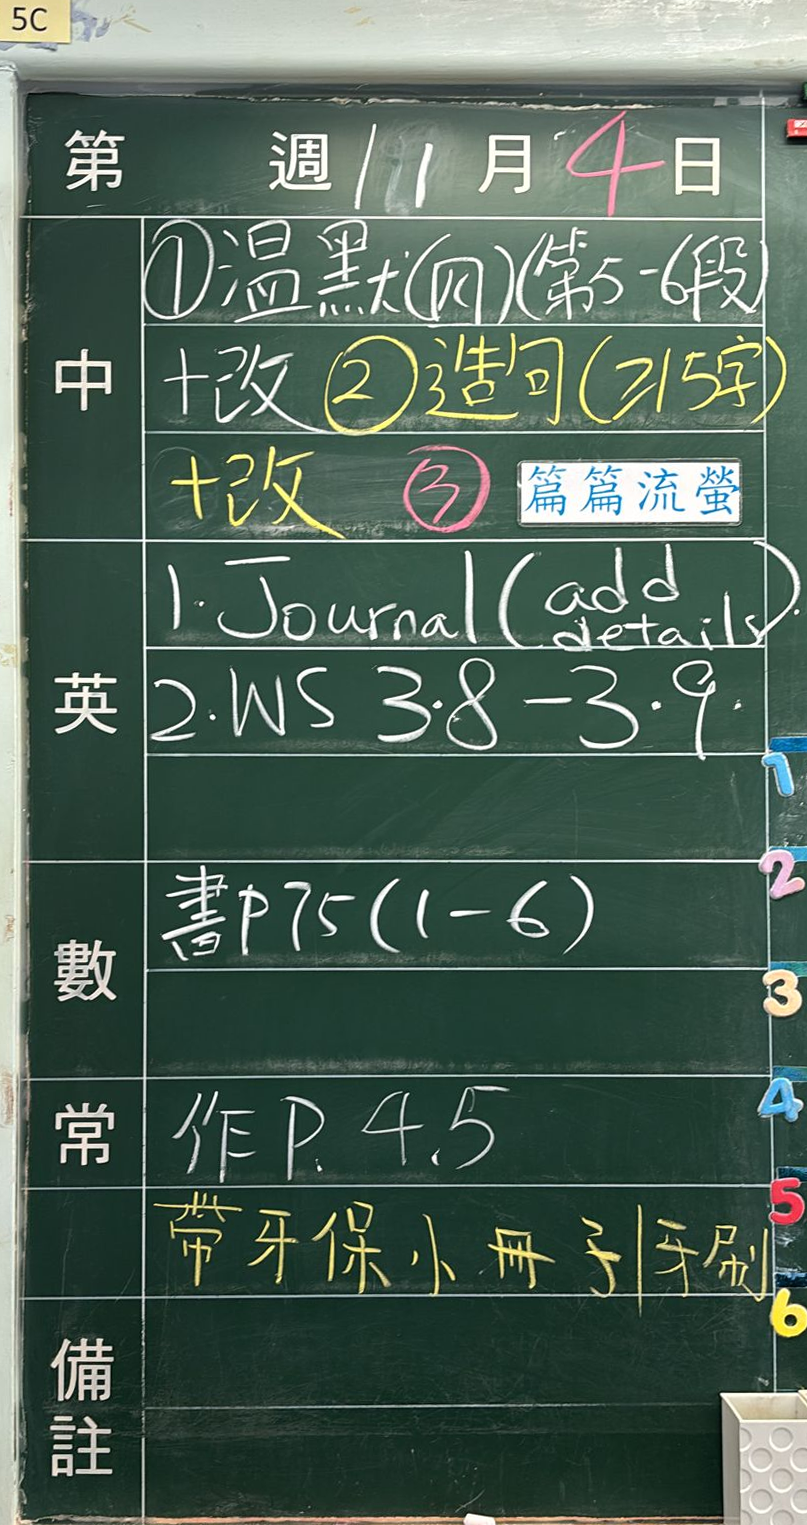 5C
第 週 11 月 4 日
中
①温默(四)(第5-6段)
+改 ②造句(≥15字)
+改 ③ 篇篇流螢
英
1. Journal (add details).
2. WS 3.8-3.9.
數
書P75(1-6)
常
作P. 4.5
帶牙保小冊子|牙刷
備註
1
2
3
4
5
6